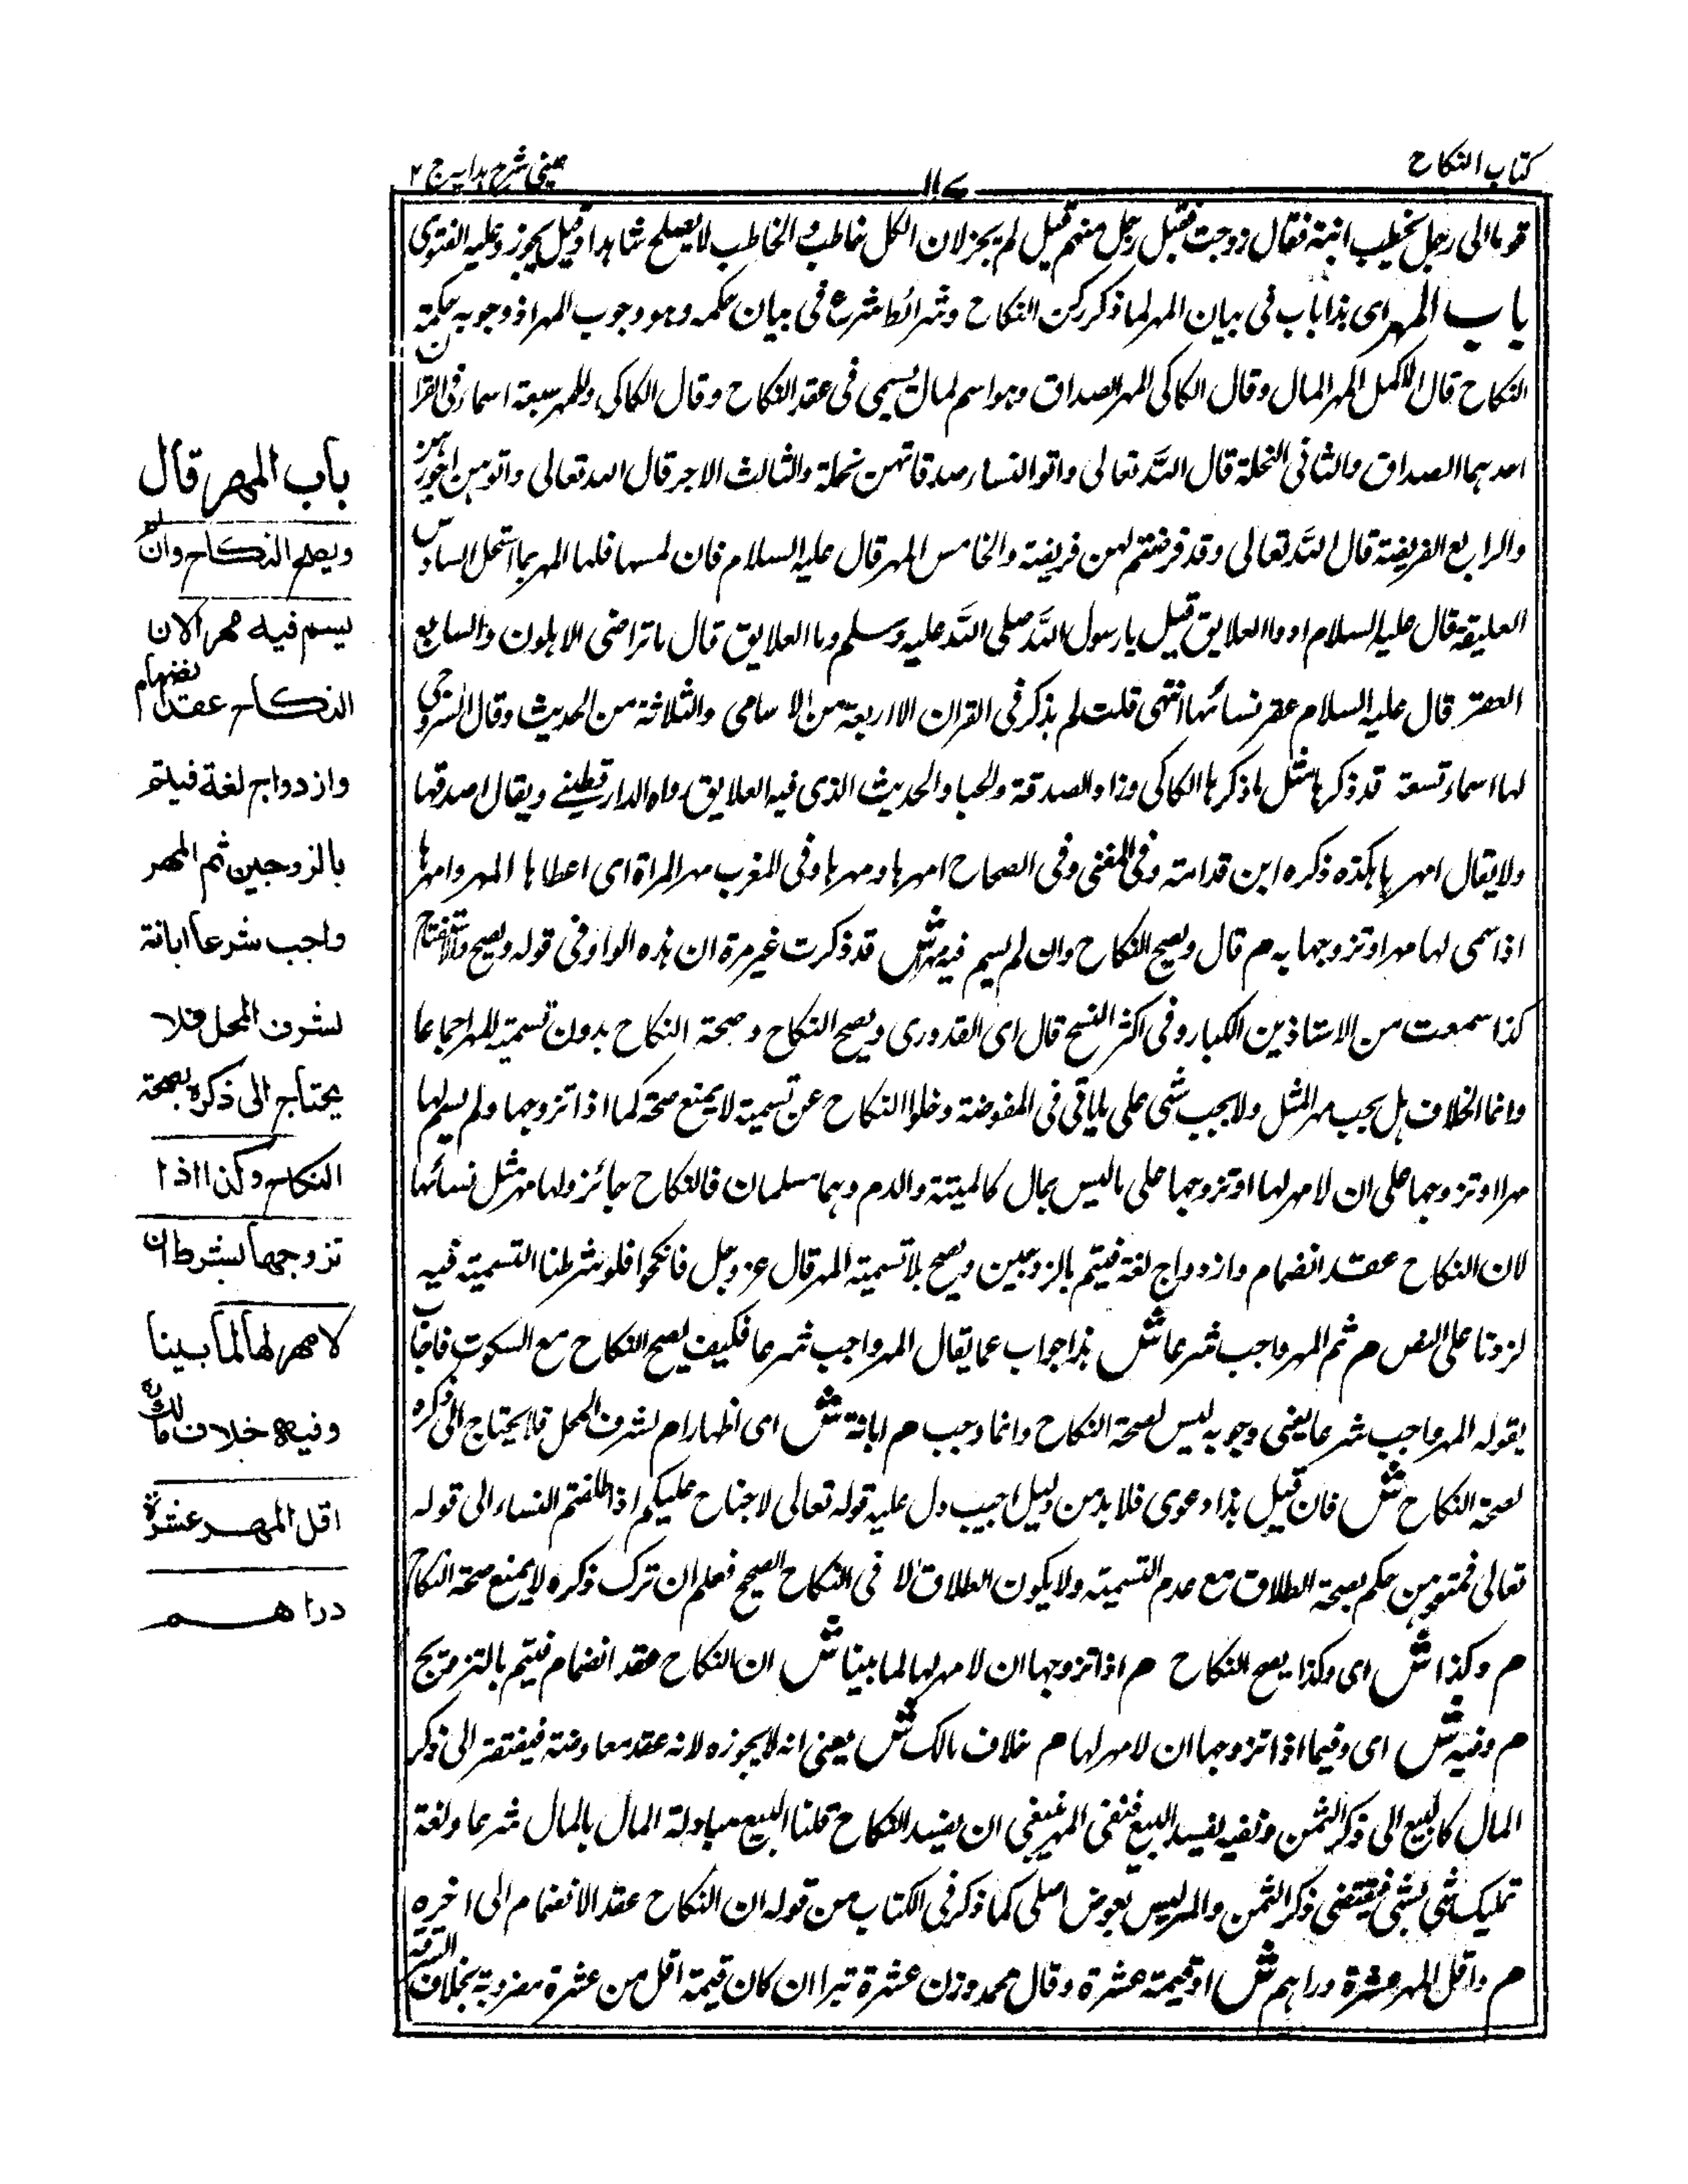 كتاب النكاح
عينى شرح هدايه ج ٢
قوما الى رجل يخطب ابنته فقال زوجت فقبل رجل منهم قيل لم يجز لان الكل خاطب والخاطب لا يصلح شاهدا وقيل يجوز وعليه الفتوى
باب المهر اى هذا باب فى بيان المهر لما ذكر ركن النكاح وشرائط شرع فى بيان حكمه وهو وجوب المهر اذ وجوبه حكمة
النكاح قال الاكمل المهر المال وقال الكاكى المهر الصداق وهو اسم لمال يسمى فى عقد النكاح وقال الكاكى وللمهر سبعة اسماء فى القران
احدهما الصداق والثانى النحلة قال الله تعالى واتوا النساء صدقاتهن نحلة والثالث الاجر قال الله تعالى واتوهن اجورهن
والرابع الفريضة قال الله تعالى وقد فرضتم لهن فريضة والخامس المهر قال عليه السلام فان لمسها فلها المهر بما استحل السادس
العليقة قال عليه السلام ادوا العلايق قيل يا رسول الله صلى الله عليه وسلم وما العلايق قال ما تراضى الاهلون والسابع
العقر قال عليه السلام عقر نسائها انتهى قلت لم يذكر فى القران الا اربعة من الاسامى والثلاثة من الحديث وقال السروجى
لها اسماء تسعة قد ذكرها مثل ما ذكرها الكاكى وزاد الصدقة والحبا والحديث الذى فيه العلايق رواه الدارقطنے ويقال اصدقها
ولا يقال امهرها هكذه ذكره ابن قدامة وفى المغنى وفى الصحاح امهرها ومهرها وفى المغرب مهر المراة اى اعطاها المهر وامهرها
اذا سمى لها مهرا وتزوجها به م قال ويصح النكاح وان لم يسم فيه مهرا ش قد ذكرت غير مرة ان هذه الواو فى قوله ويصح واو الاستفتاح
كذا سمعت من الاستاذين الكبار وفى اكثر النسخ قال اى القدورى ويصح النكاح وصحة النكاح بدون تسمية المهر اجماعا
وانما الخلاف هل يجب مهر المثل ولا يجب شى على ما ياتى فى المفوضة وخلوا النكاح عن تسمية لا يمنع صحة كما اذا تزوجها ولم يسم لها
مهرا او تزوجها على ان لا مهر لها او تزوجها على ما ليس بمال كالميتة والدم وهما مسلمان فالنكاح جائز ولها مهر مثل نسائها
لان النكاح عقد انضمام وازدواج لغة فيتم بالزوجين ويصح بلا تسمية المهر قال عز وجل فانكحوا فلو شرطنا التسمية فيه
لزدنا على النص م ثم المهر واجب شرعا ش هذا جواب عما يقال المهر واجب شرعا فكيف يصح النكاح مع السكوت فاجاب
بقوله المهر واجب شرعا يعنى وجوبه ليس لصحة النكاح وانما وجب م ابانة ش اى اظهارا م لشرف المحل فلا يحتاج الى ذكره
لصحة النكاح ش فان قيل هذا دعوى فلا بد من دليل اجيب دل عليه قوله تعالى لا جناح عليكم اذا طلقتم النساء الى قوله
تعالى فمتعوهن حكم بصحة الطلاق مع عدم التسمية ولا يكون الطلاق الا فى النكاح الصحيح فعلم ان ترك ذكره لا يمنع صحة النكاح
م وكذا ش اى وكذا يصح النكاح م اذا تزوجها ان لا مهر لها لما بينا ش ان النكاح عقد انضمام فيتم بالتزويج
م وفيه ش اى وفيما اذا تزوجها ان لا مهر لها م خلاف مالك ش يعنى انه لا يجوزه لانه عقد معاوضة فيفتقر الى ذكر
المال كالبيع الى ذكر الثمن ونفيه يفسد البيع فنفى المهر ينبغى ان يفسد النكاح قلنا البيع مبادلة المال بالمال شرعا ولغة
تمليك شى بشى فيقتضى ذكر الثمن والمهر ليس بعوض اصلى كما ذكر فى الكتاب من قوله ان النكاح عقد الانضمام الى اخره
م واقل المهر عشرة دراهم ش او قيمة عشرة وقال محمد وزن عشرة تبرا ان كان قيمة اقل من عشرة مضروبة بخلاف السرقة
باب المهر قال
ويصح النكاح وان لم
يسم فيه مهرا لان
النكاح عقد انضمام
وازدواج لغة فيتم
بالزوجين ثم المهر
واجب شرعا ابانة
لشرف المحل فلا
يحتاج الى ذكره لصحة
النكاح وكذا اذا
تزوجها بشرط ان
لا مهر لها لما بينا
وفيه خلاف مالك
اقل المهر عشرة
دراهم